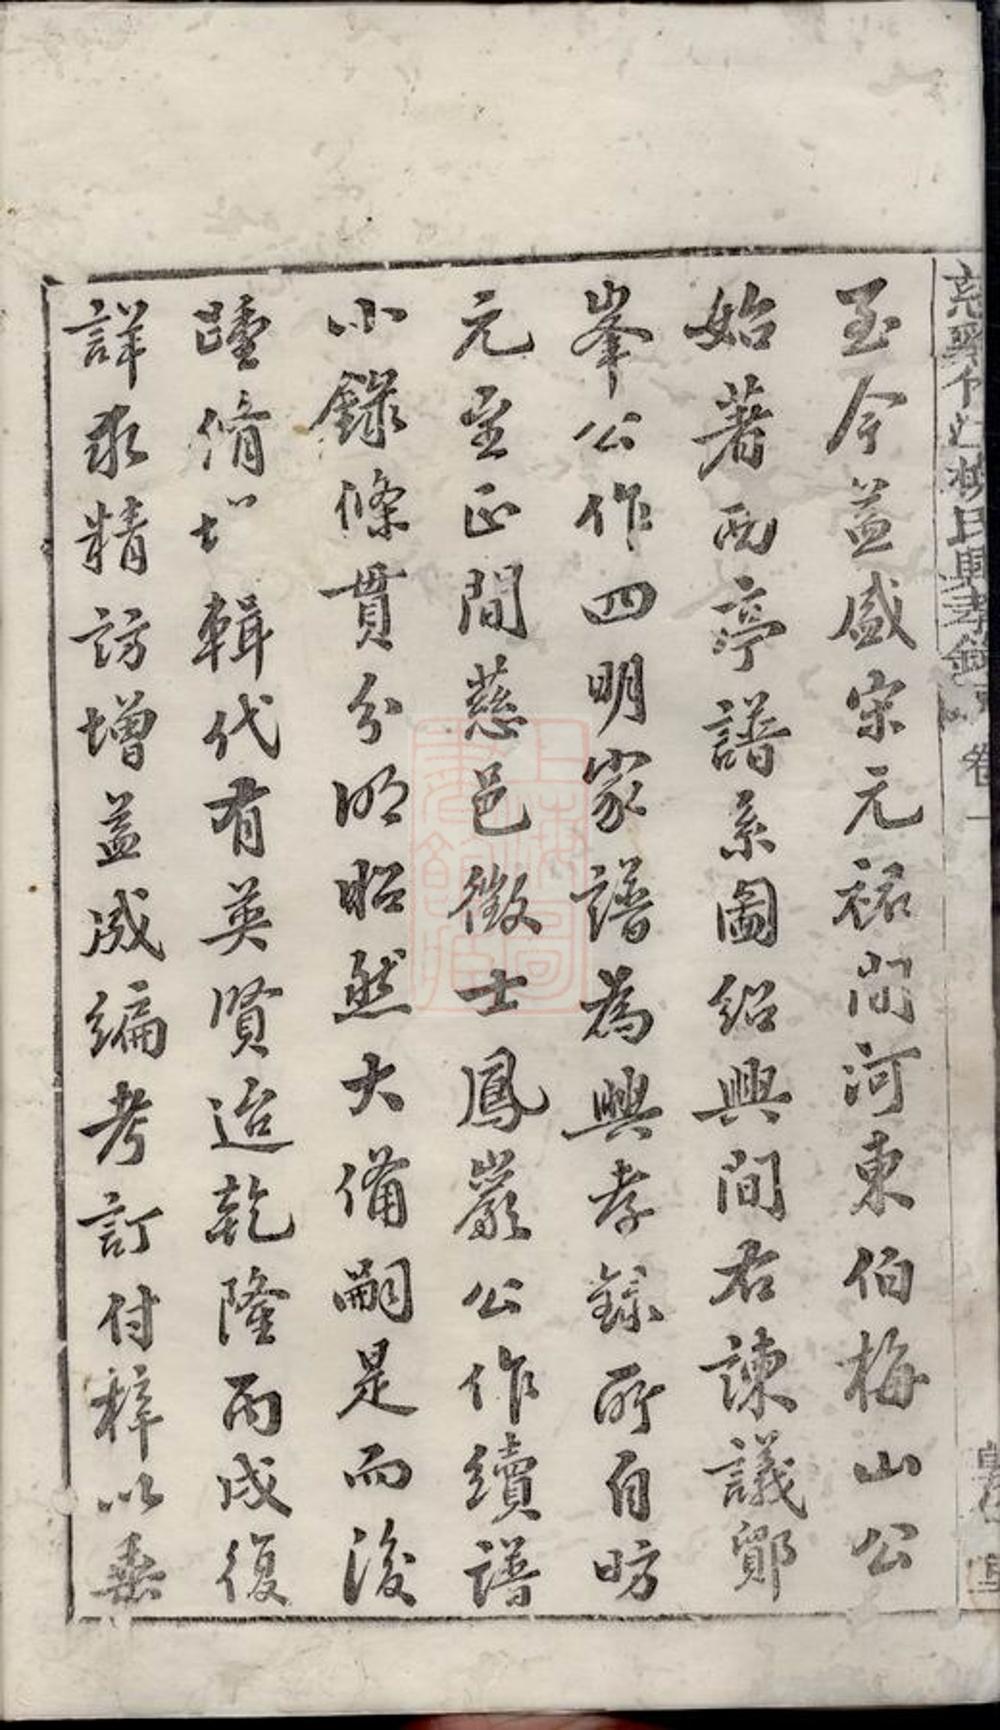 至今益盛宋元祐間河東伯梅山公
始著西亭譜系圖紹興間右諫議鄮
峯公作四明家譜為興孝錄所自昉
元至正間慈邑徵士鳳巖公作續譜
小錄條貫分明昭然大備嗣是而後
踵脩 輯代有英賢迨乾隆丙戌復
詳求精訪增益成編考訂付梓以垂
氏興孝錄 卷一